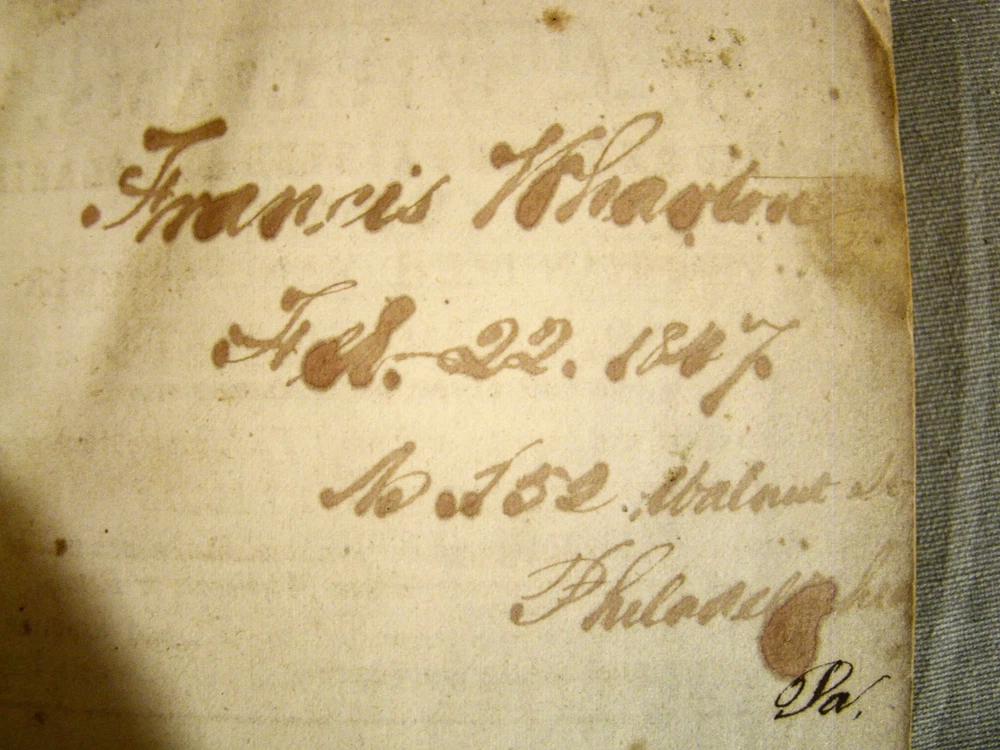 Francis Wharton
Feb. 22. 1847.
No 152. Walnut St
Philadelphia
Pa.